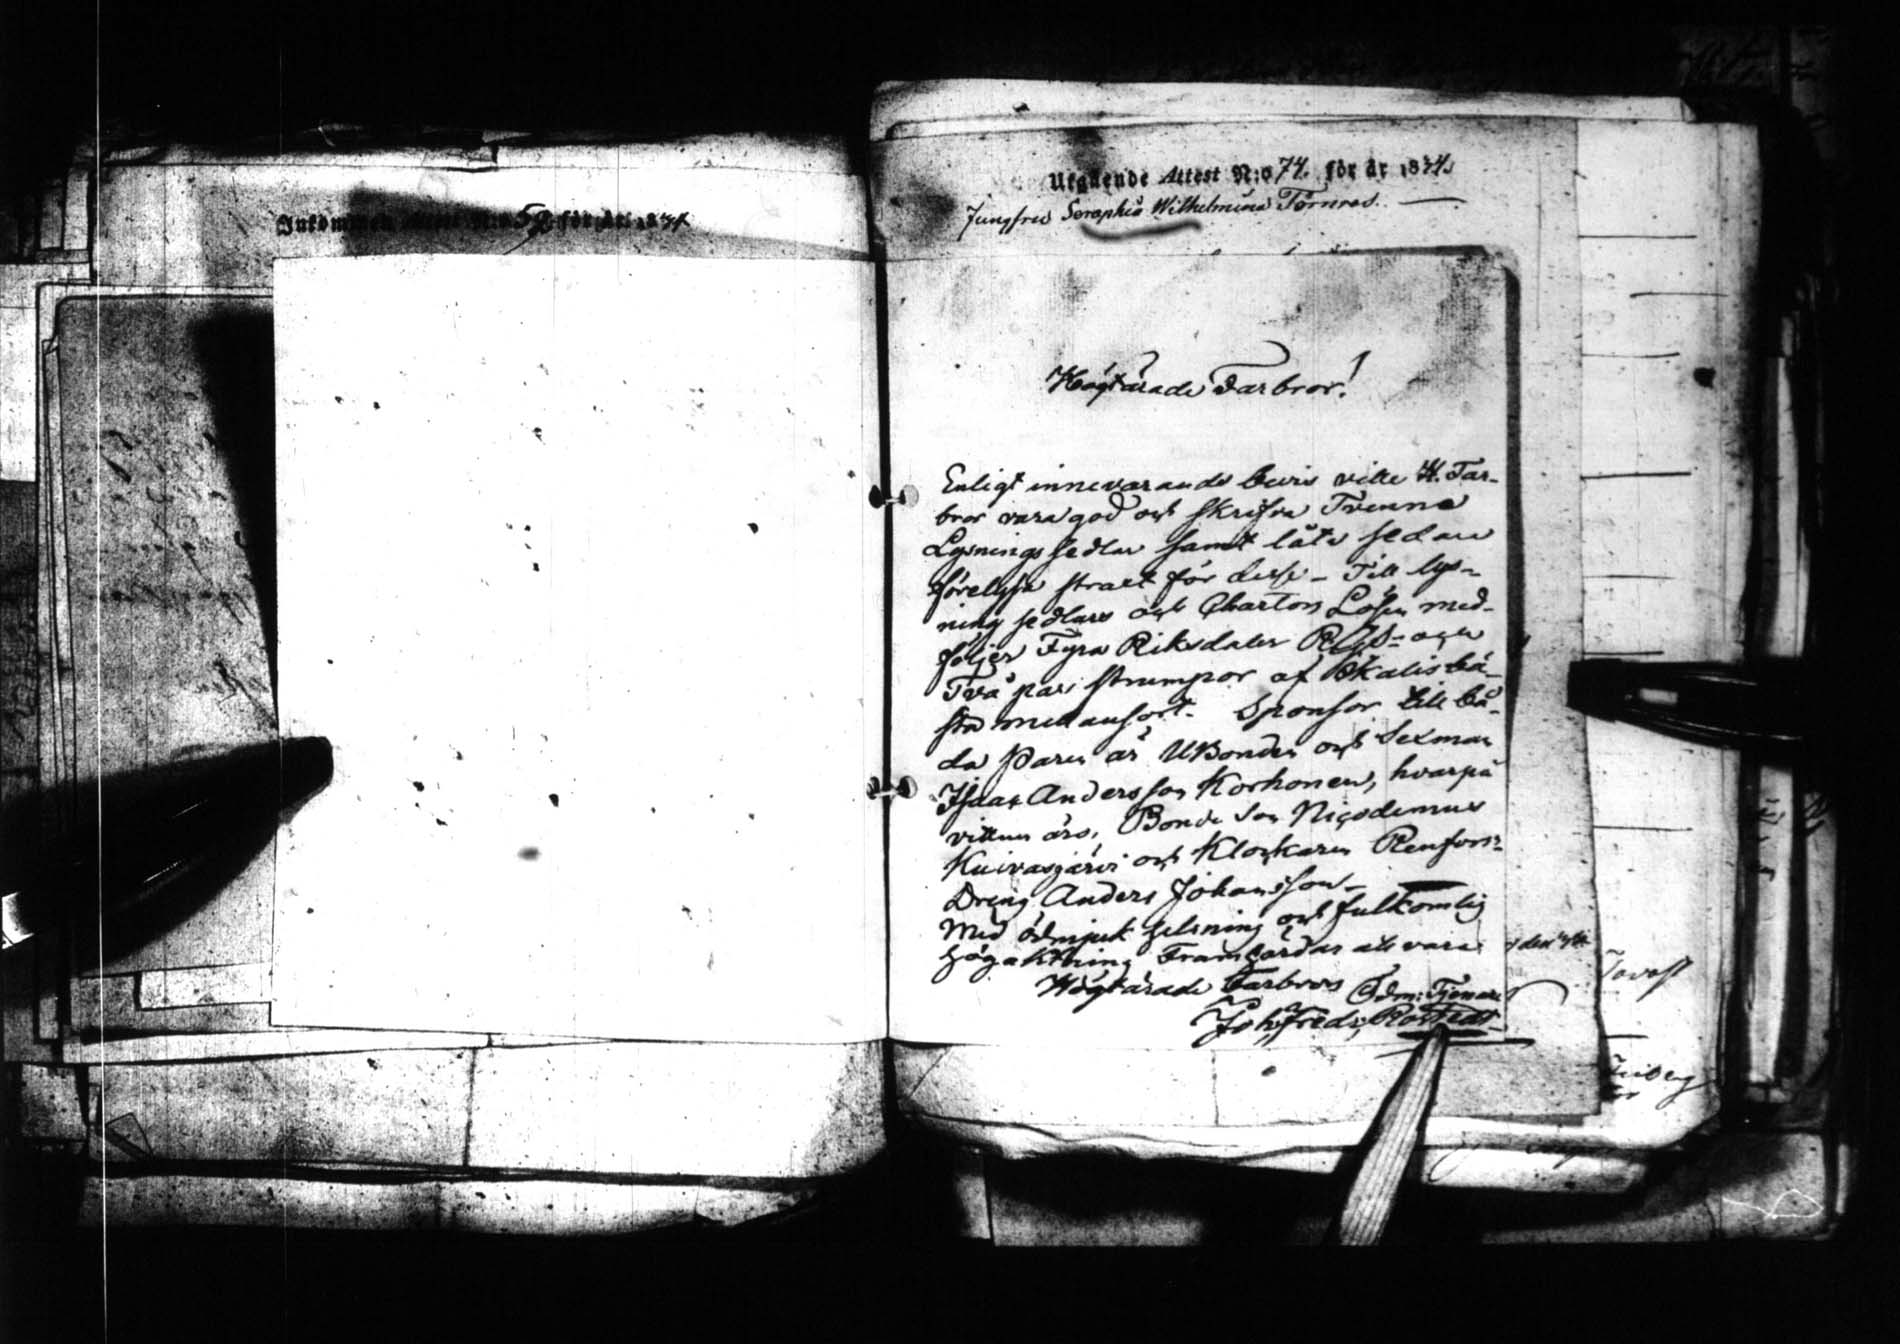 Inkommen Attest N:o 59 för år 1834.
Utgående Attest N:o 74. för år 1834.
Jungfrun Seraphia Wilhelmina Törnros.
Högtärade Farbror!
Enligt innevarande bevis ville H. Far-
bror vara god och skrifva Tvenne
Lysnings sedlar samt låta sedan
förelysa strart för desse - Till lys-
ning sedlars och Charton Lösen med-
följer Fyra Riksdaler och
Två par strumpor af
sta Sponsor till bå-
da Paren är UBonden och Sexman
Isaac Andersson Korhonen, hvarpå
vittnen äro, Bonde Son Nicodemus
Kuivasjärvi och Klockaren Renfors:
Dreng Anders Johansson -
Med ödmjuk helsning och fulkomlig
högaktning Framhärdar att vara
Högtärade Farbrors Ödm: Tjenare